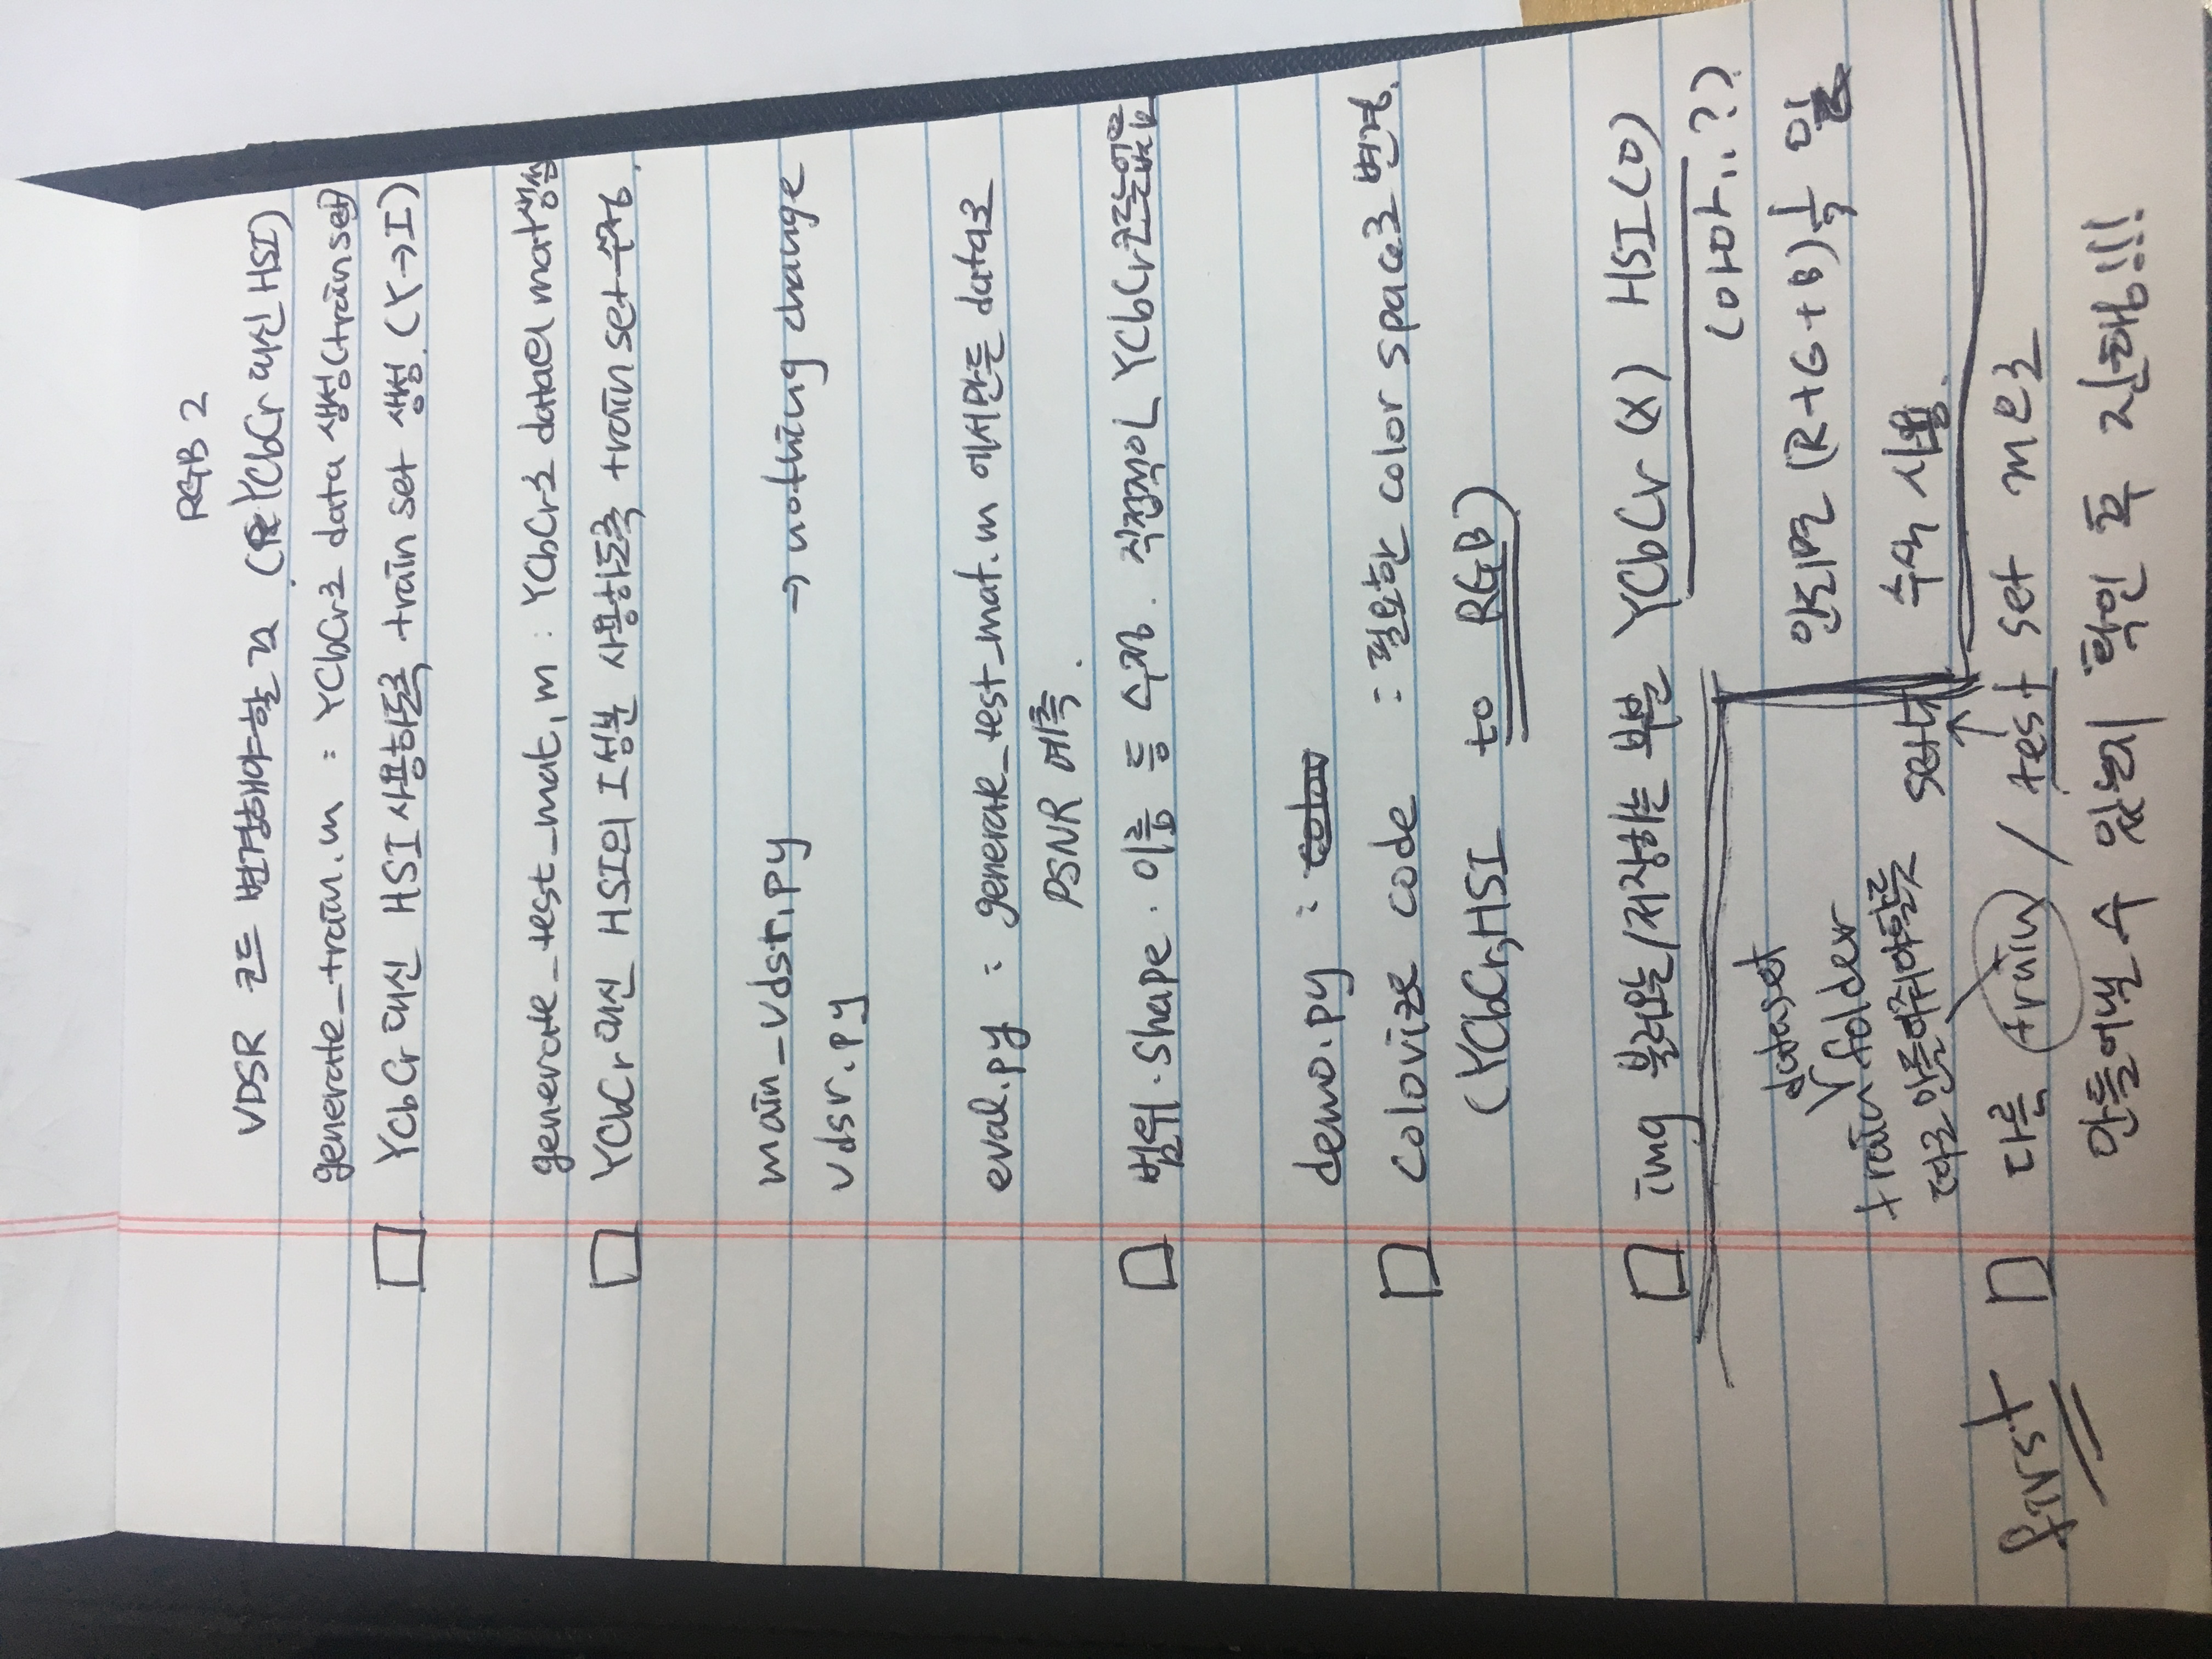 RGB 2
VDSR 코드 변경해야할 것 (YCbCr 대신 HSI)
generate_train.m : YCbCr로 data 생성(train set)
□ YCbCr 대신 HSI 사용하도록 train set 생성. (Y→I)
generate_test_mat.m : YCbCr로 data의 mat생성
□ YCbCr 대신 HSI의 I성분 사용하도록 train set 수정.
main_vdsr.py → nothing change
vdsr.py
eval.py : generate_test_mat.m 에서만든 data로
PSNR 예측.
□ 범위. Shape. 이름 등 수정. 직접적인 YCbCr코드는없음
demo.py : color
□ colorize code : 필요한 color space로 변경.
(YCbCr,HSI to RGB)
□ img 불러오는/저장하는 부분 YCbCr (X) HSI (O)
(아마..??)
안되면 (R+G+B)⅓ 일
수식 사용.
dataset
train folder
따로 만들어줘야할듯
set
first □ 다른 train / test set m으로
만들어낼 수 있는지 확인 후 진행!!!